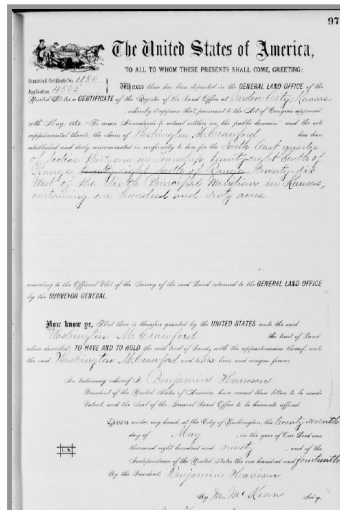 97
The United States of America,
TO ALL TO WHOM THESE PRESENTS SHALL COME, GREETING:
Homestead Certificate No. 1180
Application 4525
Whereas there has been deposited in the GENERAL LAND OFFICE of the
United States a CERTIFICATE of the Register of the Land Office at Garden City, Kansas,
whereby it appears that, pursuant to the Act of Congress approved
20th May, 1862, "To secure Homesteads to actual settlers on the public domain," and the acts
supplemental thereto, the claim of Washington M. Crawford has been
established and duly consummated in conformity to law for the South East quarter
of Section thirty one in Township twenty eight South of
Range twenty eight South of Range twenty six
West of the Sixth Principal Meridian in Kansas,
containing one hundred and sixty acres
according to the Official Plat of the Survey of the said Land returned to the GENERAL LAND OFFICE
by the SURVEYOR GENERAL
Now know ye, That there is therefore granted by the UNITED STATES unto the said
Washington M. Crawford the tract of Land
above described; TO HAVE AND TO HOLD the said tract of Land, with the appurtenances thereof, unto
the said Washington M. Crawford and to his heirs and assigns forever.
In testimony whereof I, Benjamin Harrison
President of the United States of America, have caused these letters to be made
Patent, and the Seal of the General Land Office to be hereunto affixed.
Given under my hand, at the City of Washington, the twenty seventh
day of May, in the year of Our Lord one
thousand eight hundred and ninety, and of the
Independence of the United States the one hundred and fourteenth
L.S.
By the President: Benjamin Harrison
By M. McKean Sec'y.